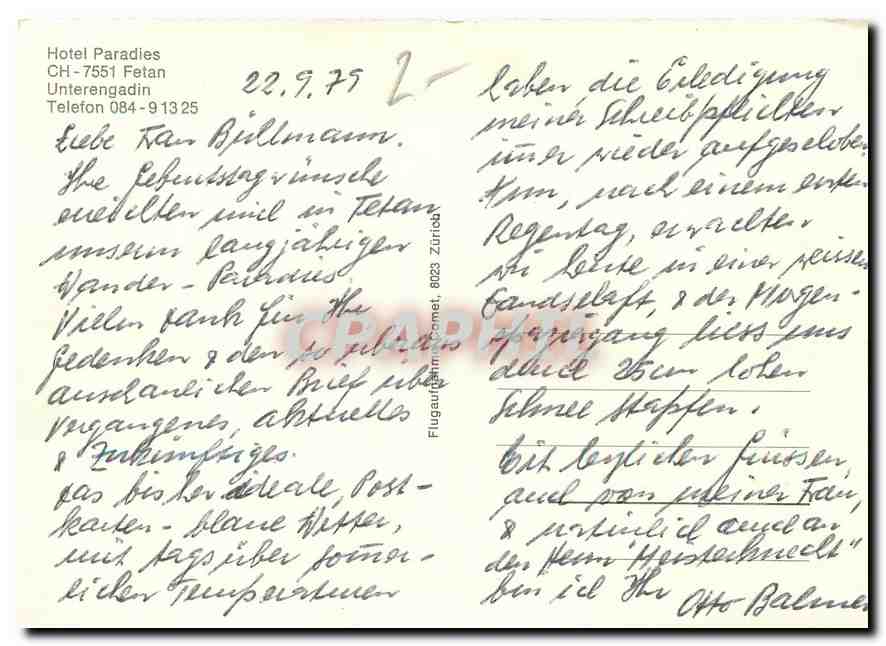 Hotel Paradies
CH - 7551 Fetan
Unterengadin
Telefon 084 - 9 13 25
22.9.79
2.-
Liebe Frau Büllmann.
Ihre Geburtstagwünsche
erreichten mich in Fetan,
unserm langjährigen
Wander-Paradies.
Vielen Dank für Ihr
Gedenken & den so überaus
anschaulichen Brief über
Vergangenes, aktuelles
& Zukünftiges.
Das bisher ideale, Post-
karten-blaue Wetter,
mit tagsüber sommer-
lichen Temperaturen
Flugaufnahme Comet, 8023 Zürich
haben die Erledigung
meiner Schreibpflichten
immer wieder aufgeschoben.
Nun, nach einem ersten
Regentag, erwachten
wir heute in einer weissen
Landschaft, & der Morgen-
spaziergang liess uns
durch 25cm hohen
Schnee stapfen.
Mit herzlichen Grüssen,
auch von meiner Frau,
& natürlich auch an
den Herrn "Meisterknecht"
bin ich Ihr
Otto Balmer
CPAPHIL